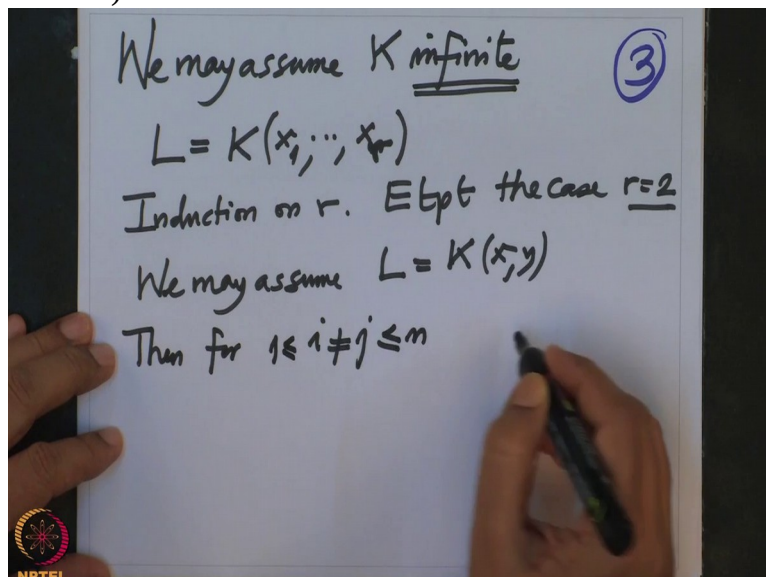 We may assume K infinite
3
L = K(x₁, ..., xᵣ)
Induction on r. Etpt the case r=2
We may assume L = K(x, y)
Then for 1 ≤ i ≠ j ≤ n
NPTEL